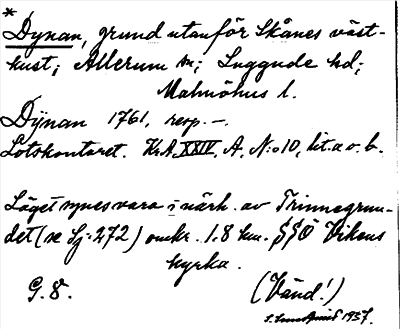 *
Dynan, grund utanför Skånes väst-
kust; Allerum sn; Luggude hd;
Malmöhus l.
Dÿnan 1761, resp. –.
Lotskontoret. Kr.A. XXIV, A, N:o 10, lit. a o. b.
Läget synes vara i närh. av Trinnegrun-
det (se Sj: 272) omkr. 1.8 km. SSÖ Vikens
kyrka.
G. 8. (Vänd!)
1937.